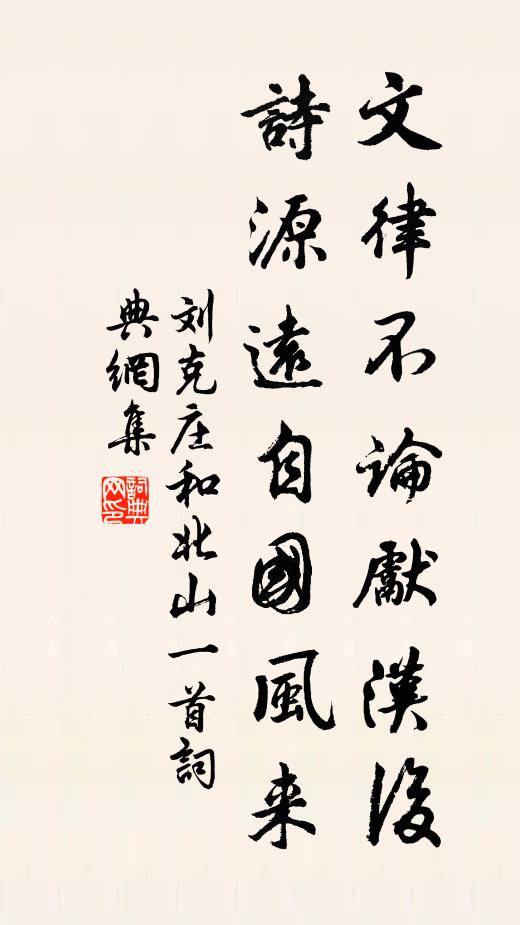 文律不論獻漢後
詩源遠自國風来
刘克庄和北山一首詞
典網集
詞典網印